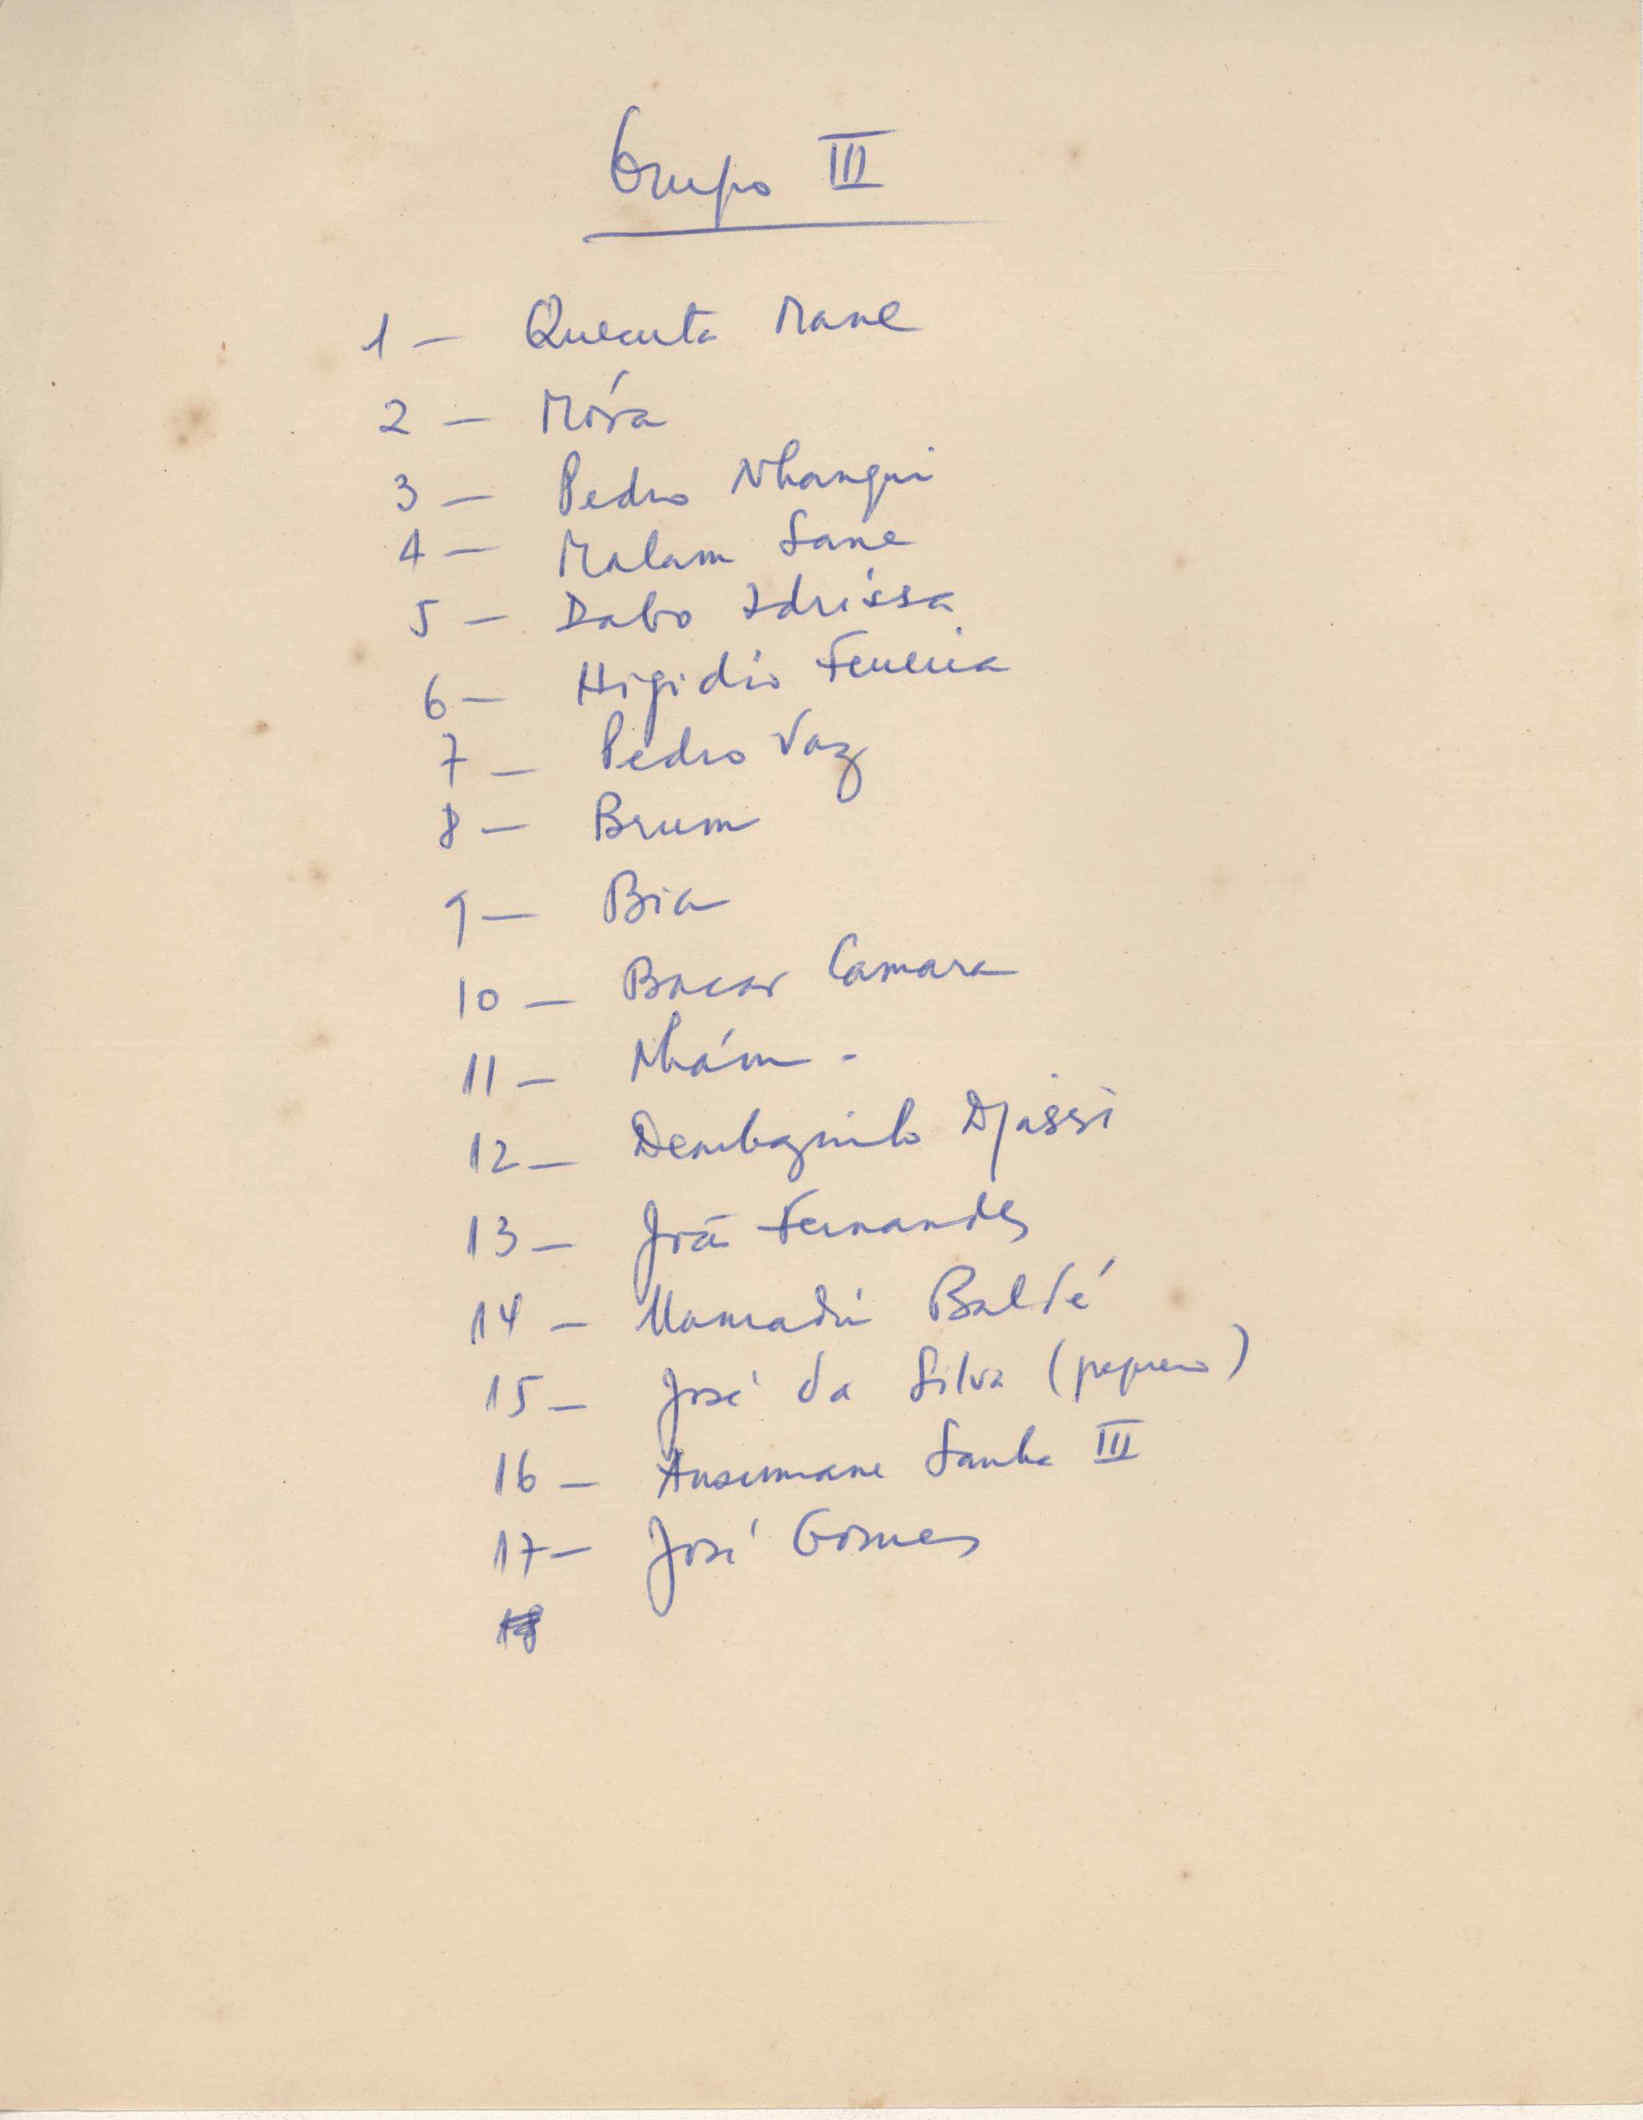 Grupo III
1 — Quecuta Mane
2 — Móra
3 — Pedro Nhangui
4 — Malam Sane
5 — Dabo Idrissa
6 — Higidio Ferreira
7 — Pedro Vaz
8 — Brum
9 — Bia
10 — Bacar Camara
11 — Nhám -
12 — Djassi
13 — João Fernandes
14 — Mamadú Baldé
15 — José da Silva (pequeno)
16 — Ansumane Samba III
17 — José Gomes
18